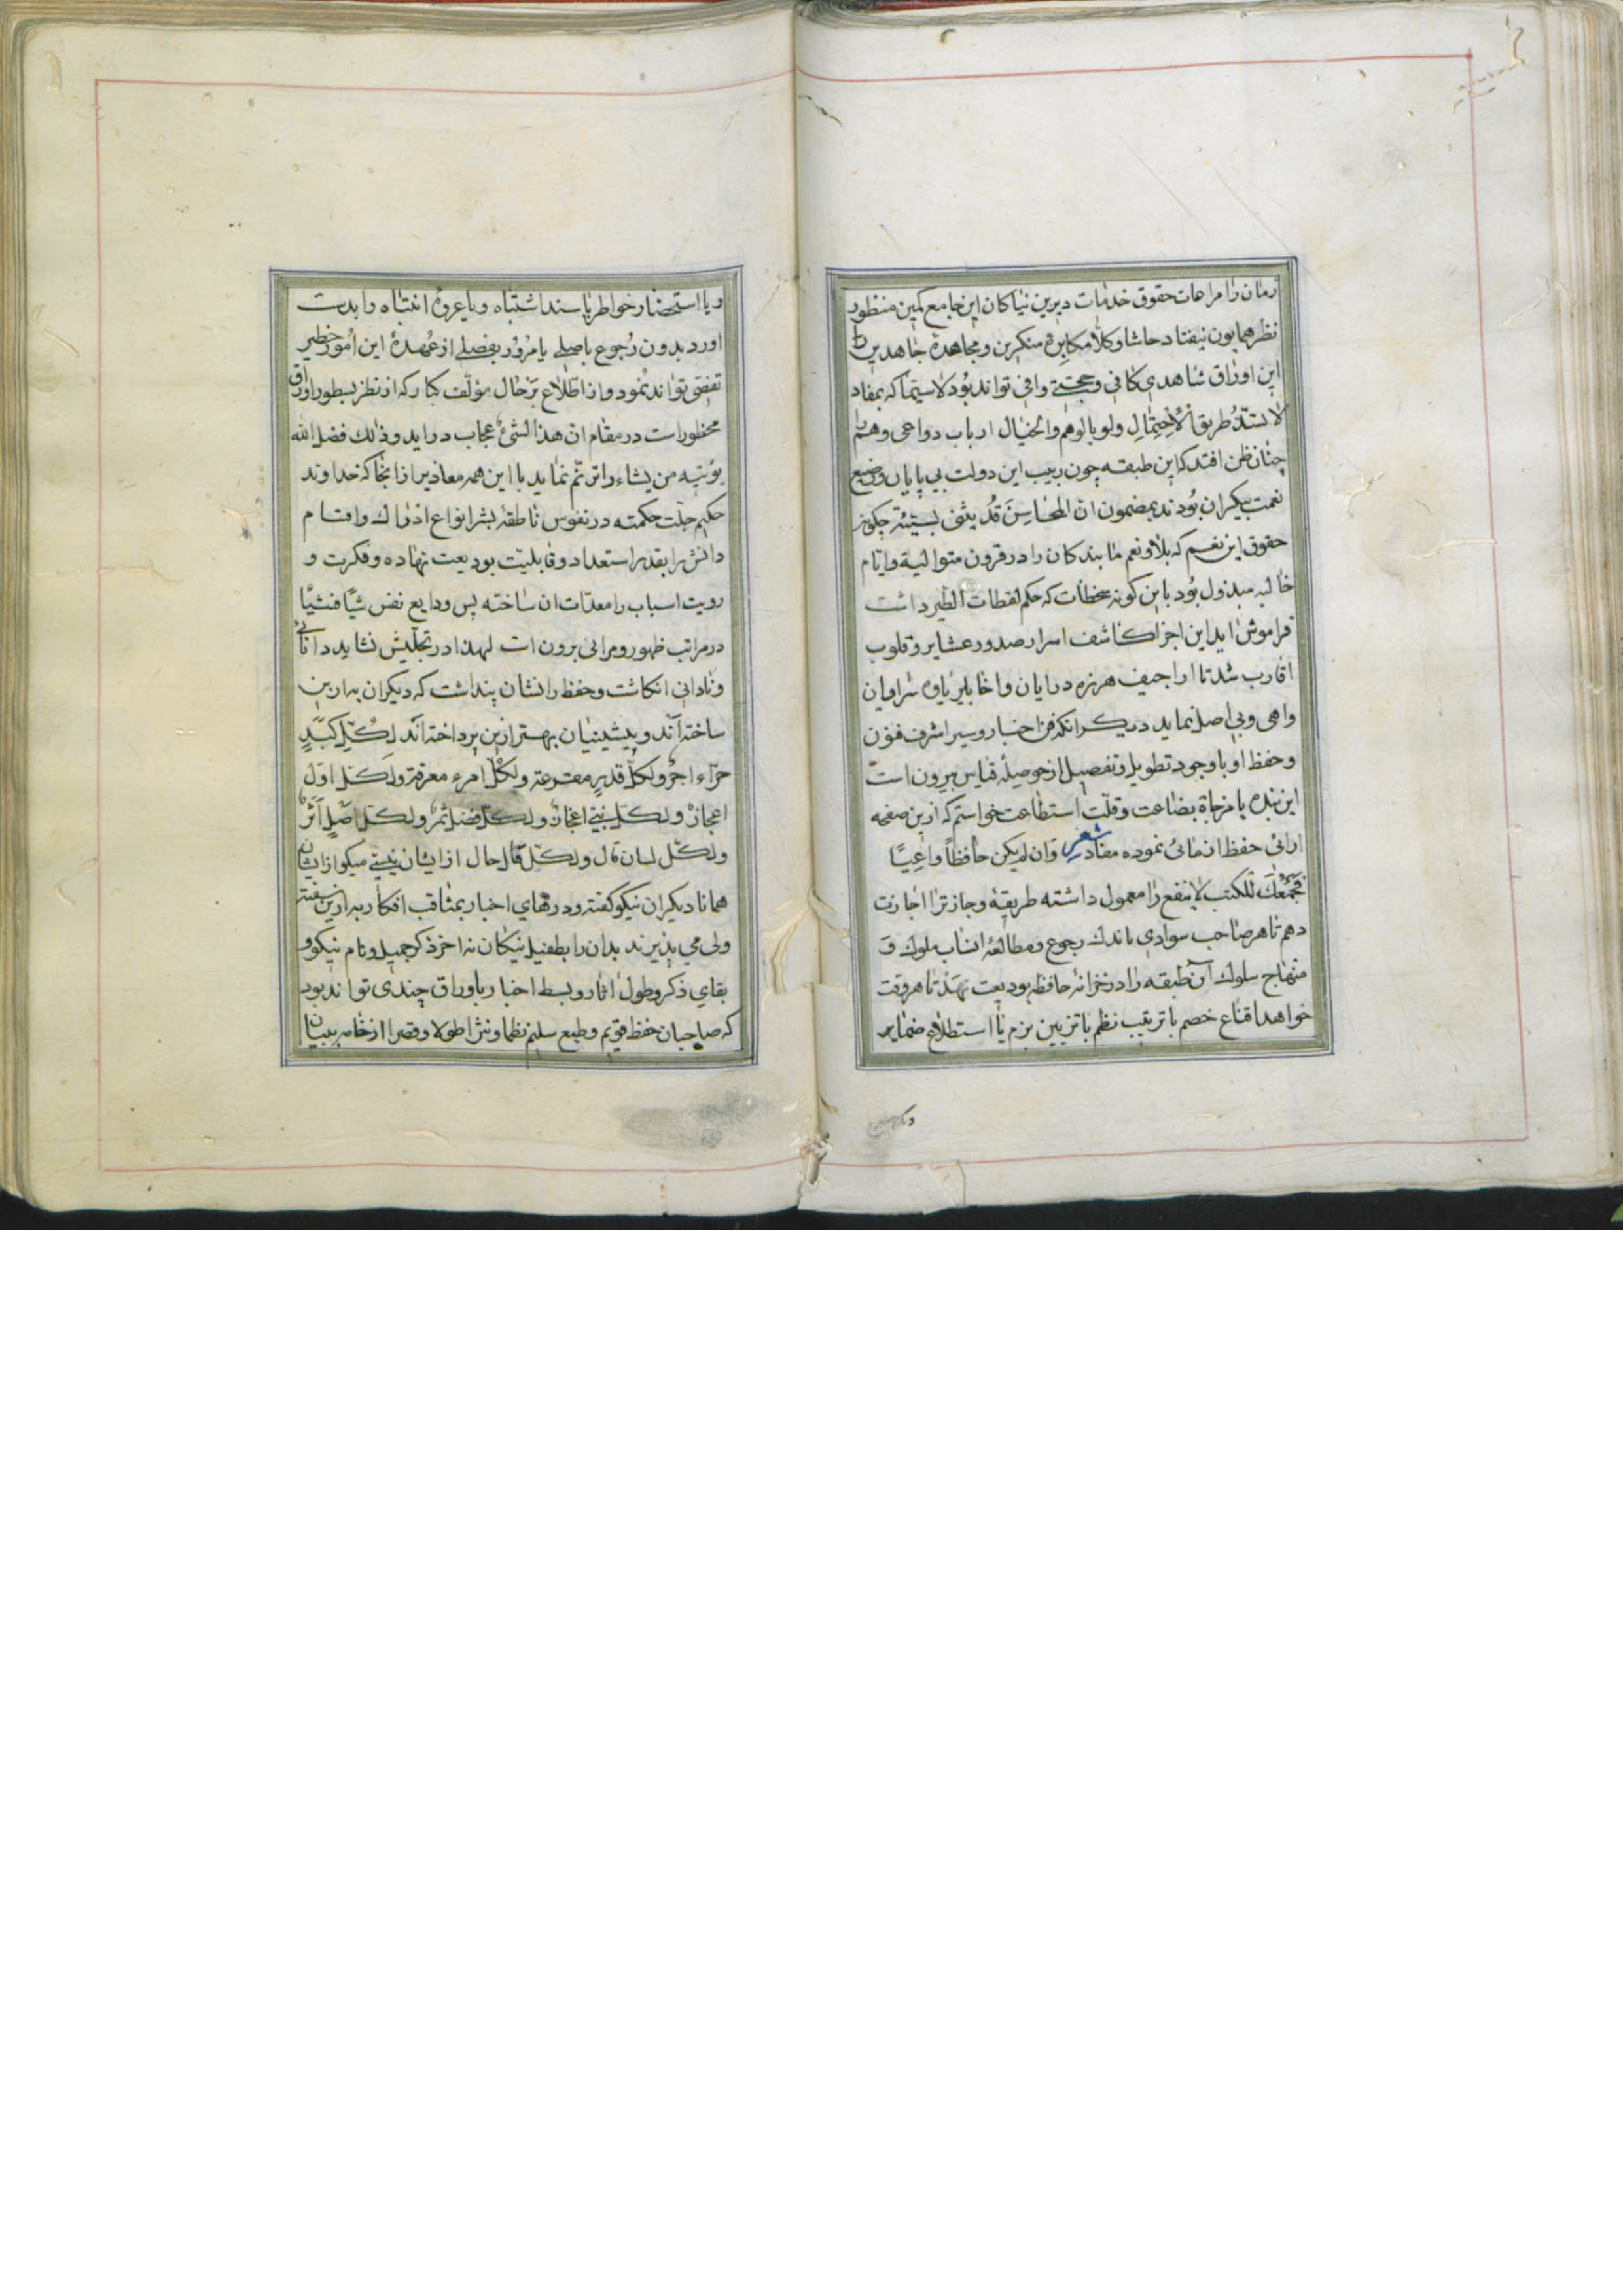 زمان را مراهات حقوق خدمات دیرین نیاکان این جامع کمین منظور
نظر همایون نیفتاد حاشا و کلا مکابرهٔ منکرین و مجاهدهٔ جاهدین را
این اوراق شاهدی کافی و حجتی وافی تواند بود لاسیما که بمفاد
لا تستدّ طریق الاحتمال ولو بالوهم والخیال ارباب دواعی وهم را
چنان ظن افتد که این طبقه چون ربیب این دولت بی پایان و رضیع
نعمت بیکران بودند بمضمون ان المحاسن قد یثنی بسیئة چکونه
حقوق این نعیم که بلاو نعم ما بندکان را در قرون متوالیة و ایام
خالیه مبذول بود باین کونه سخطات که حکم لقطات الطیر داشت
فراموش اید این اجزا کاشف اسرار صدور عشایر و قلوب
اقارب شد تا اراجیف هرزه درایان و اخابیر یاوه سرایان
واهی و بی اصل نماید دیکر انکه فن اخبار و سیر اشرف فنون
و حفظ او با وجود تطویل و تفصیل از حوصلهٔ قیاس بیرون است
این بنده با مزجاة بضاعت و قلّت استطاعت خواستم که ازین صفحه
ارائی حفظ ازمائی نموده مفاد شعر وان لم یکن حافظاً واعیّا
فجمعك للکتب لا ینفع را معمول داشته طریقهٔ وجازترا اجازت
دهم تا هر صاحب سوادی باندك رجوع و مطالعهٔ انساب ملوك و
منهاج سلوك آن طبقه را در خزانهٔ حافظه بودیعت نهد تا هر وقت
خواهد اقناع خصم با ترتیب نظم با تزیین بزم یا استطلاع ضمایر
ویا استحضار خواطر یا سند اشتباه ویا عروهٔ انتباه را بدست
اورد بدون رجوع باصلی یا مرور بفصلی از عهدهٔ این امور خطیر
تفصّی تواند نمود و از اطلاع بر حال مؤلف کبار که از نظر بسطور اوراق
محظور است در مقام ان هذا لشئ عجاب دراید وذلك فضل الله
یؤتیه من یشاء را ترنّم نماید با این همه معاذیر ازانجا که خداوند
حکیم جلّت حکمته در نفوس ناطقهٔ بشر انواع ادراك و اقسام
دانش را بقدر استعداد و قابلیّت بودیعت نهاده و فکرت و
رویت اسباب را معدّات ان ساخته پس ودایع نفس شیًا فشیًا
در مراتب ظهور و مرائی برون ات لهذا در تجلّیش نشاید دانائی
و نادانی انکاشت و حفظ را نشان پنداشت که دیکران به ازین
ساخته آند و پیشینیان بهتر ازین پرداخته اند لکل کبد
حرّاء اجر ولکل قدر مقرعة ولکل امرء معرفة ولکل اول
اعجاز ولکل نبی اعجاز ولکل فضل ثمر ولکل اصل اثر
ولکل لسان قال ولکل قال حال از ایشان نیستی میکو از ایشان
همانا دیکران نیکو کفته و درهای اخبار بمثاقب افکار به ازین سفته
ولی می پذیرند بدان را بطفیل نیکان نه اخر ذکر جمیل و نام نیکو و
بقای ذکر و طول اثار و بسط اخبار باوراق چندی تواند بود
که صاحبان حفظ قویم و طبع سلیم نظما و نثرا طولا و قصرا از خامه بیان